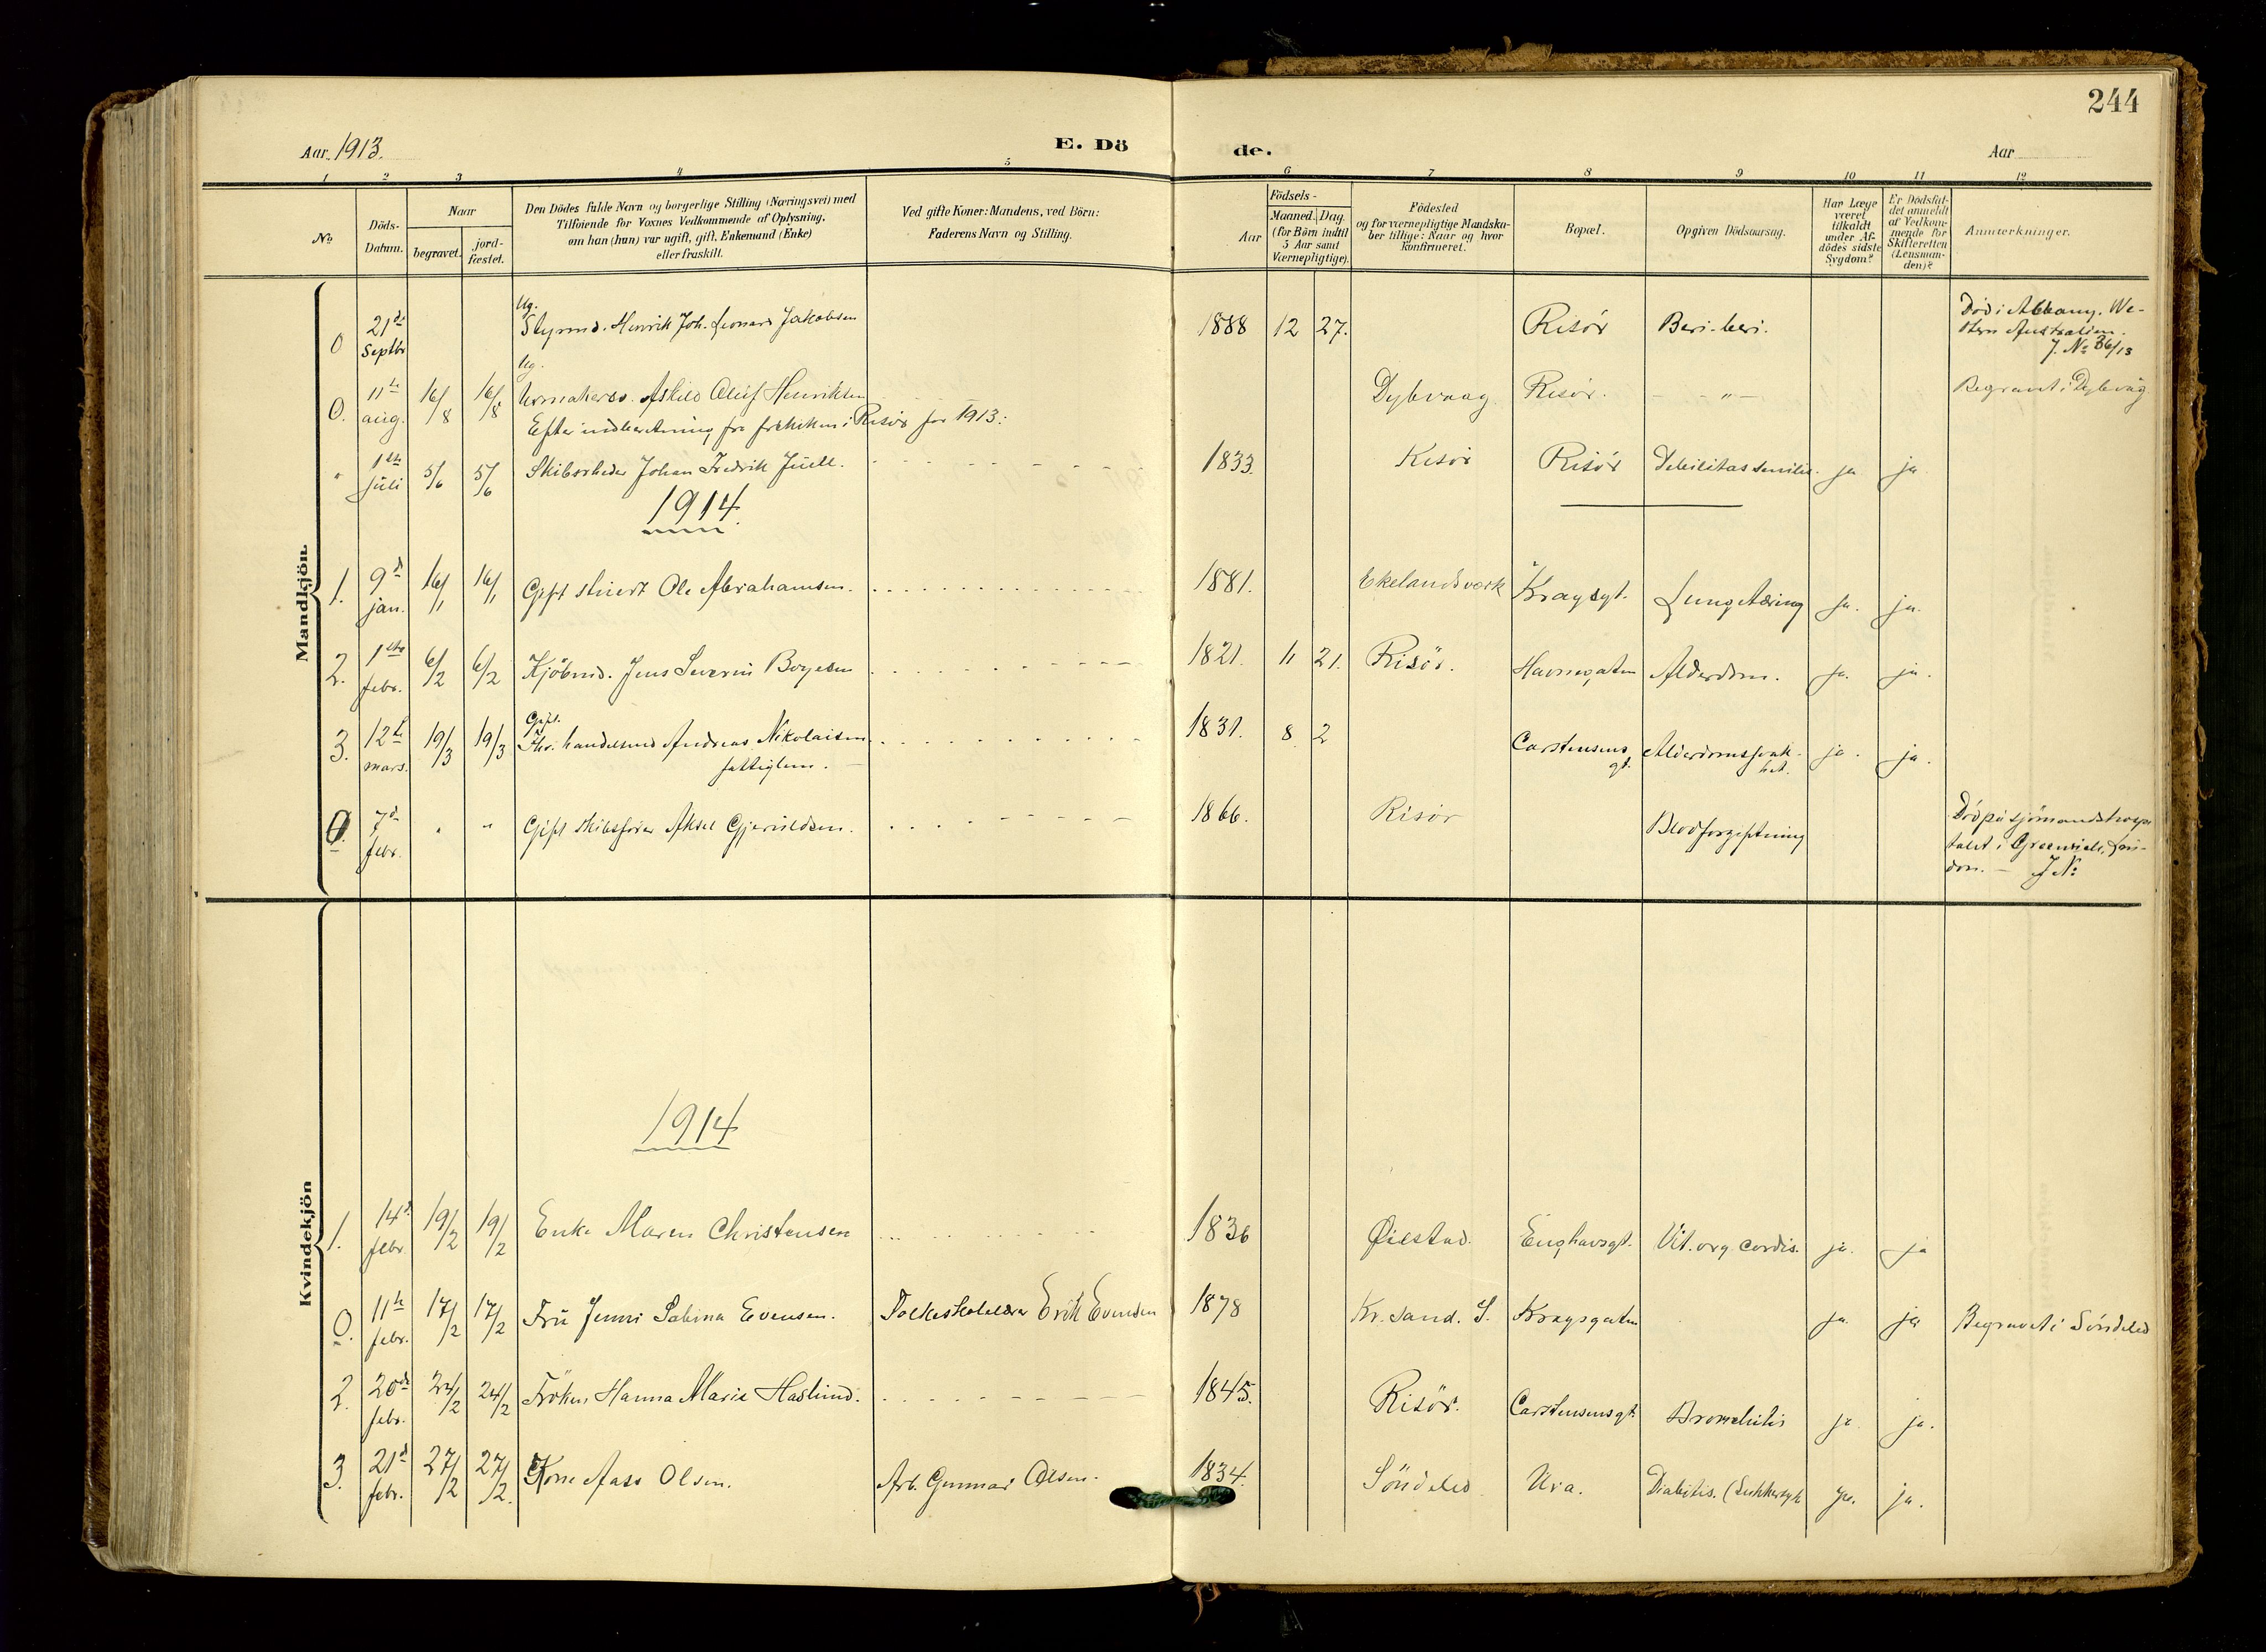 244
Aar 1913.
E. Dö
de.
Aar
1 2 3 4 5 6 7 8 9 10 11 12
No
Döds-
Datum.
Naar
begravet.
jord-
fæstet.
Den Dödes fulde Navn og borgerlige Stilling (Næringsvei) med
Tilföiende for Voxnes Vedkommende af Oplysning,
om han (hun) var ugift, gift, Enkemand (Enke)
eller fraskilt.
Ved gifte Koner: Mandens, ved Börn:
Faderens Navn og Stilling.
Födsels-
Aar
Maaned. Dag.
(for Börn indtil
5 Aar samt
Værnepligtige).
Födested
og for værnepligtige Mandska-
ber tillige: Naar og hvor
konfirmeret.
Bopæl.
Opgiven Dödsaarsag.
Har Læge
været
tilkaldt
under Af-
dödes sidste
Sygdom?
Er Dödsfal-
det anmeldt
af Vedkom-
mende for
Skifteretten
(Lensman-
den)?
Anmærkninger.
Mandkjön.
0 21de Septbr Ug. Styrmd. Henrik Joh. Leonard Jakobsen 1888 12 27. Risör Beri-beri. Död i Albany. We-
stern Australien.
J. No 36/13
0. 11te aug. 16/8 16/8 Ug. Urmakersv. Askild Oluf Henriksen Dybvaag Risör. - - " - Begravet i Dybvåg
Efter indberetning fra frikirken i Risör for 1913:
" 1ste juli 5/6 5/6 Skibsrheder Johan Fredrik Juell. 1833. Risör Risör Debilitas senilis. ja ja
1914.
1. 9d jan. 16/1 16/1 Gift stuert Ole Abrahamsen. 1881. Ekelandsverk Kragsgt. Lungetæring ja. ja.
2. 1ste febr. 6/2 6/2 Kjöbmd. Jens Severin Boyesen 1821. 11 21. Risör. Havnegaten Alderdom. ja. ja.
3. 12te mars. 19/3 19/3 Gift. Fhv. handelsmd Andreas Nikolaisen 1831. 8 2 Carstensens gt. Alderdomssvak-
het. ja. ja.
fattiglem.
0. 7de febr. " " Gift skibsförer Aksel Gjeruldsen. 1866. Risör Blodforgiftning Död på sjömandshospi-
talet i Greenwich, Lon-
don. - J No
Kvindekjön
1914
1. 14d febr. 19/2 19/2 Enke Maren Christensen 1836 Øiestad. Enghavsgt. Vit. org. cordis. ja. ja
0. 11te febr. 17/2 17/2 Fru Jenni Sabina Evensen. Folkeskolelærer Erik Evensen 1878 Kr.sand. S. Kragsgaten ja. ja Begravet i Söndeled
2. 20de febr. 24/2 24/2 Fröken Hanna Marie Haslund. 1845. Risör. Carstensensgt. Bronchitis ja. ja.
3. 21d febr. 27/2 27/2. Kone Aase Olsen. Arb. Gunnar Olsen. 1834. Söndeled Ura. Diabetis. (Sukkersyk ja. ja.